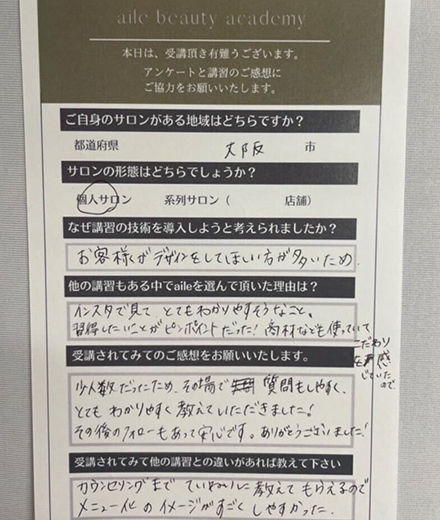 aile beauty academy
本日は、受講頂き有難うございます。
アンケートと講習のご感想に
ご協力をお願いいたします。
ご自身のサロンがある地域はどちらですか？
都道府県 大阪 市
サロンの形態はどちらでしょうか？
個人サロン 系列サロン（ 店舗）
なぜ講習の技術を導入しようと考えられましたか？
お客様がデザインをしてほしい方が多いため
他の講習もある中でaileを選んで頂いた理由は？
インスタで見て、とてもわかりやすそうなこと。
習得したいことがピンポイントだった！商材なども使っていて
こだわり
を感
じていた
ので
受講されてみてのご感想をお願いいたします。
少人数だったため、その場で質問もしやすく、
とてもわかりやすく教えていただきました！
その後のフォローもあって安心です。ありがとうございました！
受講されてみて他の講習との違いがあれば教えて下さい
カウンセリングまでていねいに教えてもらえるので
メニュー化のイメージがすごくしやすかった。